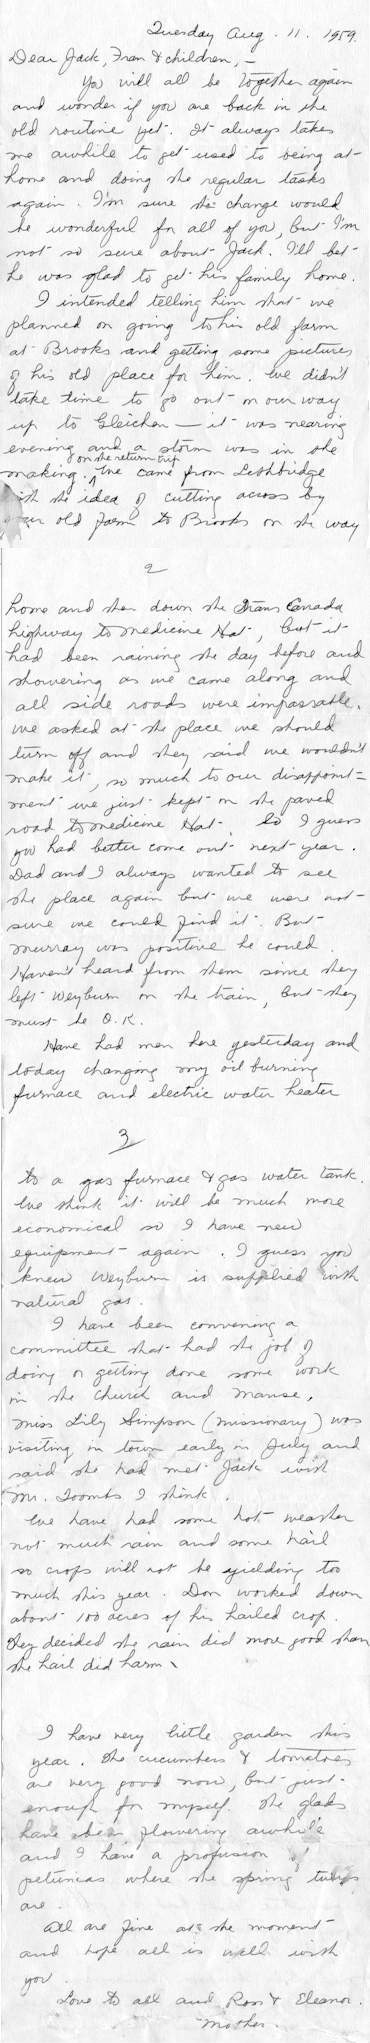 Tuesday Aug. 11. 1959.
Dear Jack, Fran & children, –
You will all be together again
and wonder if you are back in the
old routine yet. It always takes
me awhile to get used to being at
home and doing the regular tasks
again. I'm sure the change would
be wonderful for all of you, but I'm
not so sure about Jack. I'll bet
he was glad to get his family home.
I intended telling him that we
planned on going to his old farm
at Brooks and getting some pictures
of his old place for him. We didn't
take time to go out on our way
up to Gleichen – it was nearing
evening and a storm was in the
on the return trip
making. We came from Lethbridge
with the idea of cutting across by
your old farm to Brooks on the way
2
home and then down the Trans Canada
highway to Medicine Hat, but it
had been raining the day before and
showering as we came along and
all side roads were impassable.
We asked at the place we should
turn off and they said we wouldn't
make it, so much to our disappoint=
ment we just kept on the paved
road to Medicine Hat. So I guess
you had better come out next year.
Dad and I always wanted to see
the place again but we were not
sure we could find it. But
Murray was positive he could.
Haven't heard from them since they
left Weyburn on the train, but they
must be O.K.
Have had men here yesterday and
today changing my oil burning
furnace and electric water heater
3
to a gas furnace & gas water tank.
We think it will be much more
economical so I have new
equipment again. I guess you
knew Weyburn is supplied with
natural gas.
I have been convening a
committee that had the job of
doing or getting done some work
in the Church and Manse.
Miss Lily Simpson (missionary) was
visiting in town early in July and
said she had met Jack with
Mr. Toombs I think.
We have had some hot weather
not much rain and some hail
so crops will not be yielding too
much this year. Don worked down
about 100 acres of his hailed crop.
They decided the rain did more good than
the hail did harm.
I have very little garden this
year. The cucumbers & tomatoes
are very good now, but just
enough for myself. The glads
have been flowering awhile
and I have a profusion of
petunias where the spring tulips
are.
All are fine at the moment
and hope all is well with
you.
Love to all and Ross & Eleanor.
Mother.